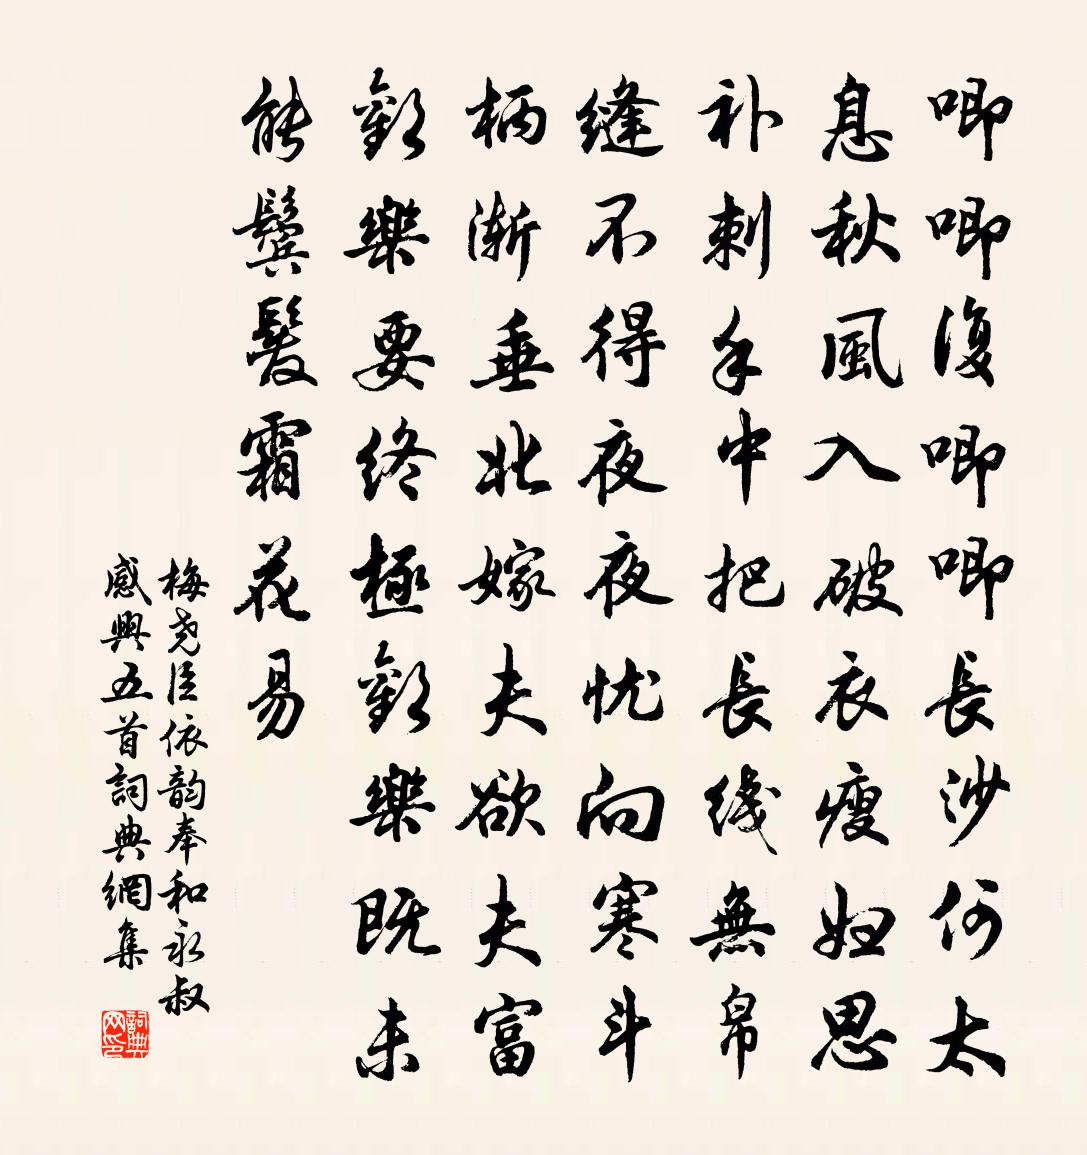 唧唧復唧唧長沙何太
息秋風入破衣瘦妇思
补刺手中把長线無帛
缝不得夜夜忧向寒斗
柄漸垂北嫁夫欲夫富
歡樂要終極歡樂既未
能鬓髮霜花易
梅尧臣依韵奉和永叔
感興五首詞典網集
詞典网印